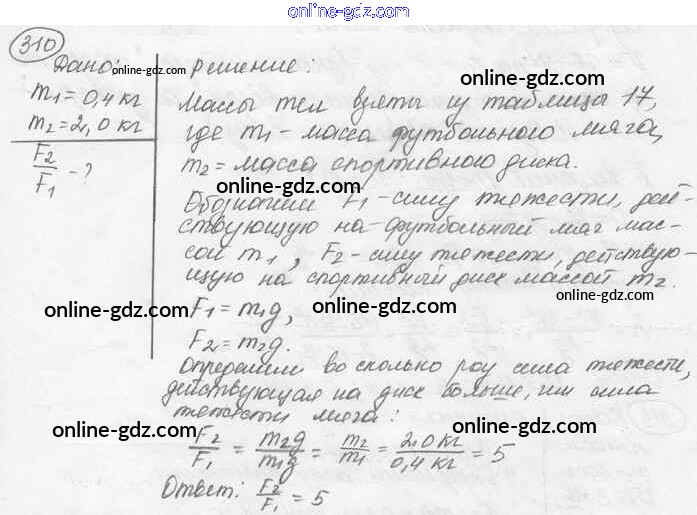 online-gdz.com
310
Дано:
m₁ = 0,4 кг
m₂ = 2,0 кг
F₂/F₁ - ?
online-gdz.com
решение:
online-gdz.com
Массы тел взяты из таблицы 17,
где m₁ - масса футбольного мяча,
online-gdz.com
m₂ = масса спортивного диска.
online-gdz.com
Обозначим F₁ - силу тяжести, дей-
ствующую на футбольный мяч мас-
сой m₁, F₂ - силу тяжести, действую-
online-gdz.com
щую на спортивный диск массой m₂.
online-gdz.com
online-gdz.com
online-gdz.com
F₁ = m₁g,
F₂ = m₂g.
Определим во сколько раз сила тяжести,
online-gdz.com
действующая на диск больше, чем сила
тяжести мяча:
online-gdz.com
online-gdz.com
F₂/F₁ = m₂g/m₁g = m₂/m₁ = 2,0 кг/0,4 кг = 5
Ответ: F₂/F₁ = 5
online-gdz.com
online-gdz.com